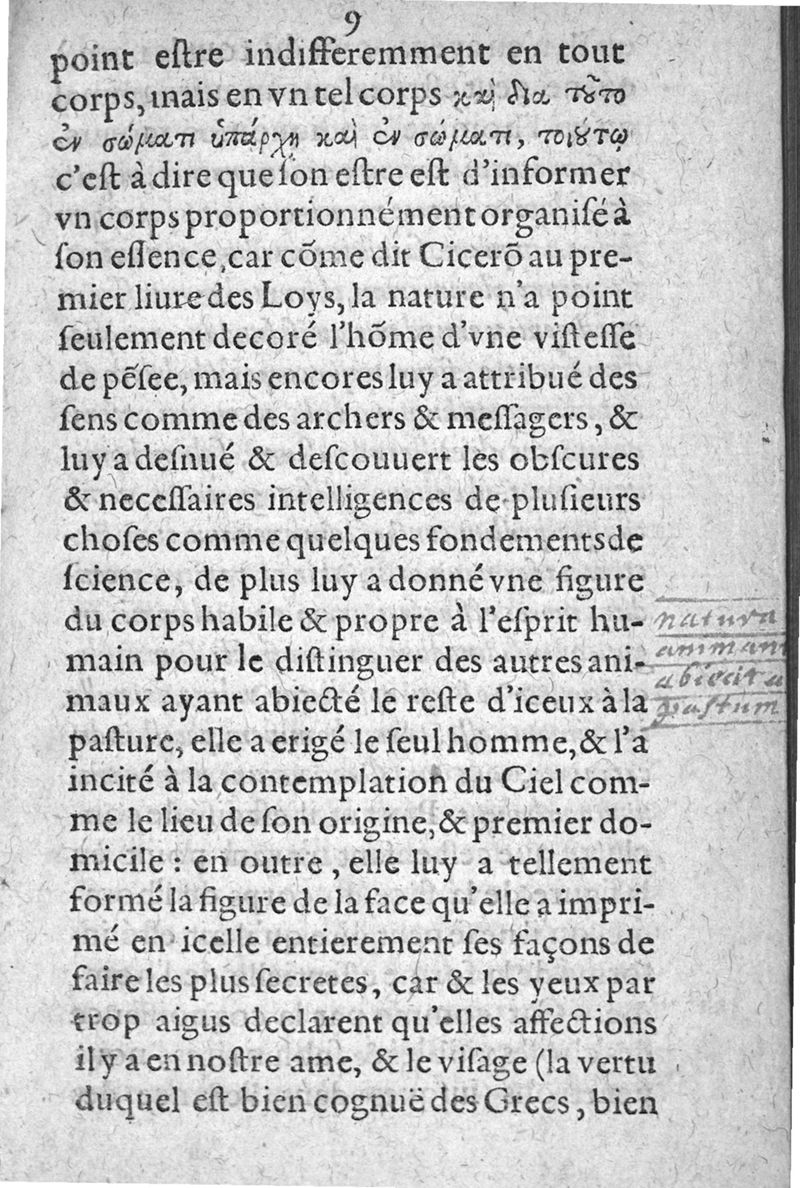 9
point eſtre indifferemment en tout
corps, mais en vn tel corps καὶ δια τοῦτο
ἐν σώματι ὑπάρχῃ καὶ ἐν σώματι, τοιούτῳ
c'eſt à dire que ſon eſtre eſt d'informer
vn corps proportionnément organiſé à
ſon eſſence, car cõme dit Cicerõ au pre-
mier liure des Loys, la nature n'a point
ſeulement decoré l'hõme d'vne viſteſſe
de pẽſee, mais encores luy a attribué des
ſens comme des archers & meſſagers, &
luy a deſnué & deſcouuert les obſcures
& neceſſaires intelligences de pluſieurs
choſes comme quelques fondements de
ſcience, de plus luy a donné vne figure
du corps habile & propre à l'eſprit hu-
main pour le diſtinguer des autres ani-
maux ayant abiecté le reſte d'iceux à la
paſture, elle a erigé le ſeul homme, & l'a
incité à la contemplation du Ciel com-
me le lieu de ſon origine, & premier do-
micile : en outre, elle luy a tellement
formé la figure de la face qu'elle a impri-
mé en icelle entierement ſes façons de
faire les plus ſecretes, car & les yeux par
trop aigus declarent qu'elles affections
il y a en noſtre ame, & le viſage (la vertu
duquel eſt bien cognuë des Grecs, bien
natura
animan
abiecit a
paſtum